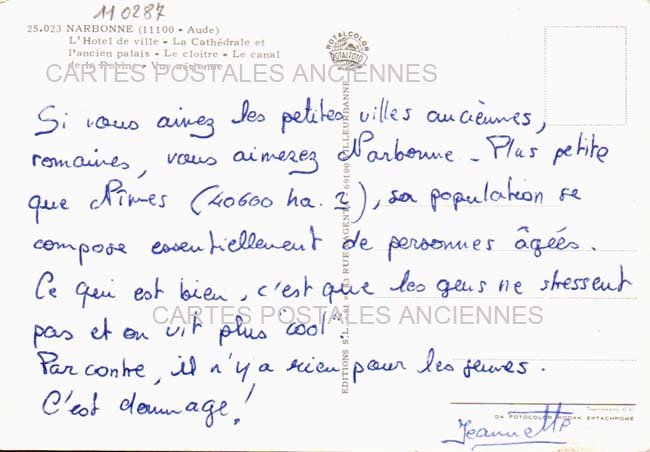 110287
25.023 NARBONNE (11100 - Aude)
L'Hotel de ville - La Cathédrale et
l'ancien palais - Le cloitre - Le canal
de la Robine - Vue aérienne
ROTALCOLOR
ROTALFOTO
CARTES POSTALES ANCIENNES
Si vous aimez les petites villes anciennes,
romaines, vous aimerez Narbonne - Plus petite
que Nîmes (40600 ha. ?), sa population se
compose essentiellement de personnes âgées.
Ce qui est bien, c'est que les gens ne stressent
CARTES POSTALES ANCIENNES
pas et on vit plus "cool".
Par contre, il n'y a rien pour les jeunes.
C'est dommage!
EDITIONS S.L. RUE 69100 VILLEURBANNE
DA FOTOCOLOR KODAK EKTACHROME
Jeannette